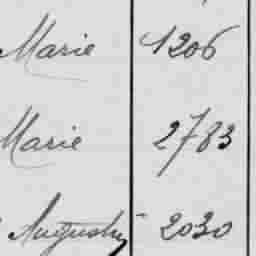 Marie 1206
Marie 2783
2030